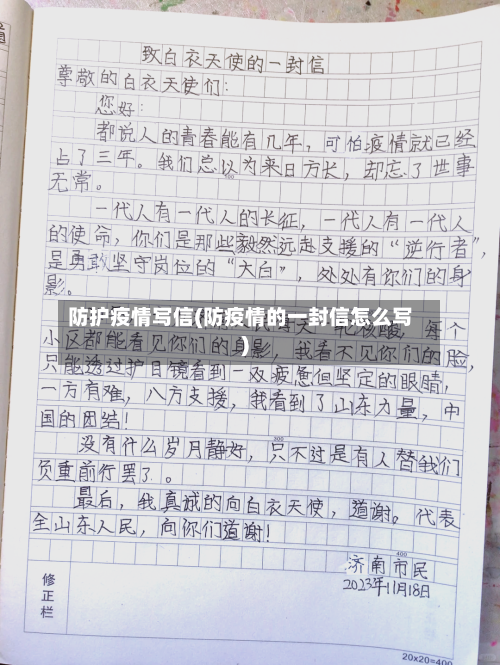 致白衣天使的一封信
尊敬的白衣天使们：
您好：
都说人的青春能有几年，可怕疫情就已经
占了三年。我们总以为来日方长，却忘了世事
无常。
一代人有一代人的长征，一代人有一代人
的使命，你们是那些毅然远赴支援的“逆行者”，
是勇敢坚守岗位的“大白”，处处有你们的身
影。
防护疫情写信(防疫情的一封信怎么写
)
每个
小区都能看见你们的身影，我看不见你们的脸，
只能透过护目镜看到一双疲惫但坚定的眼睛，
一方有难，八方支援，我看到了山东力量，中
国的团结！
300
没有什么岁月静好，只不过是有人替我们
负重前行罢了。
最后，我真诚的向白衣天使，道谢。代表
全山东人民，向你们道谢！
400
济南市民
2023年11月18日
修正栏
20×20=400